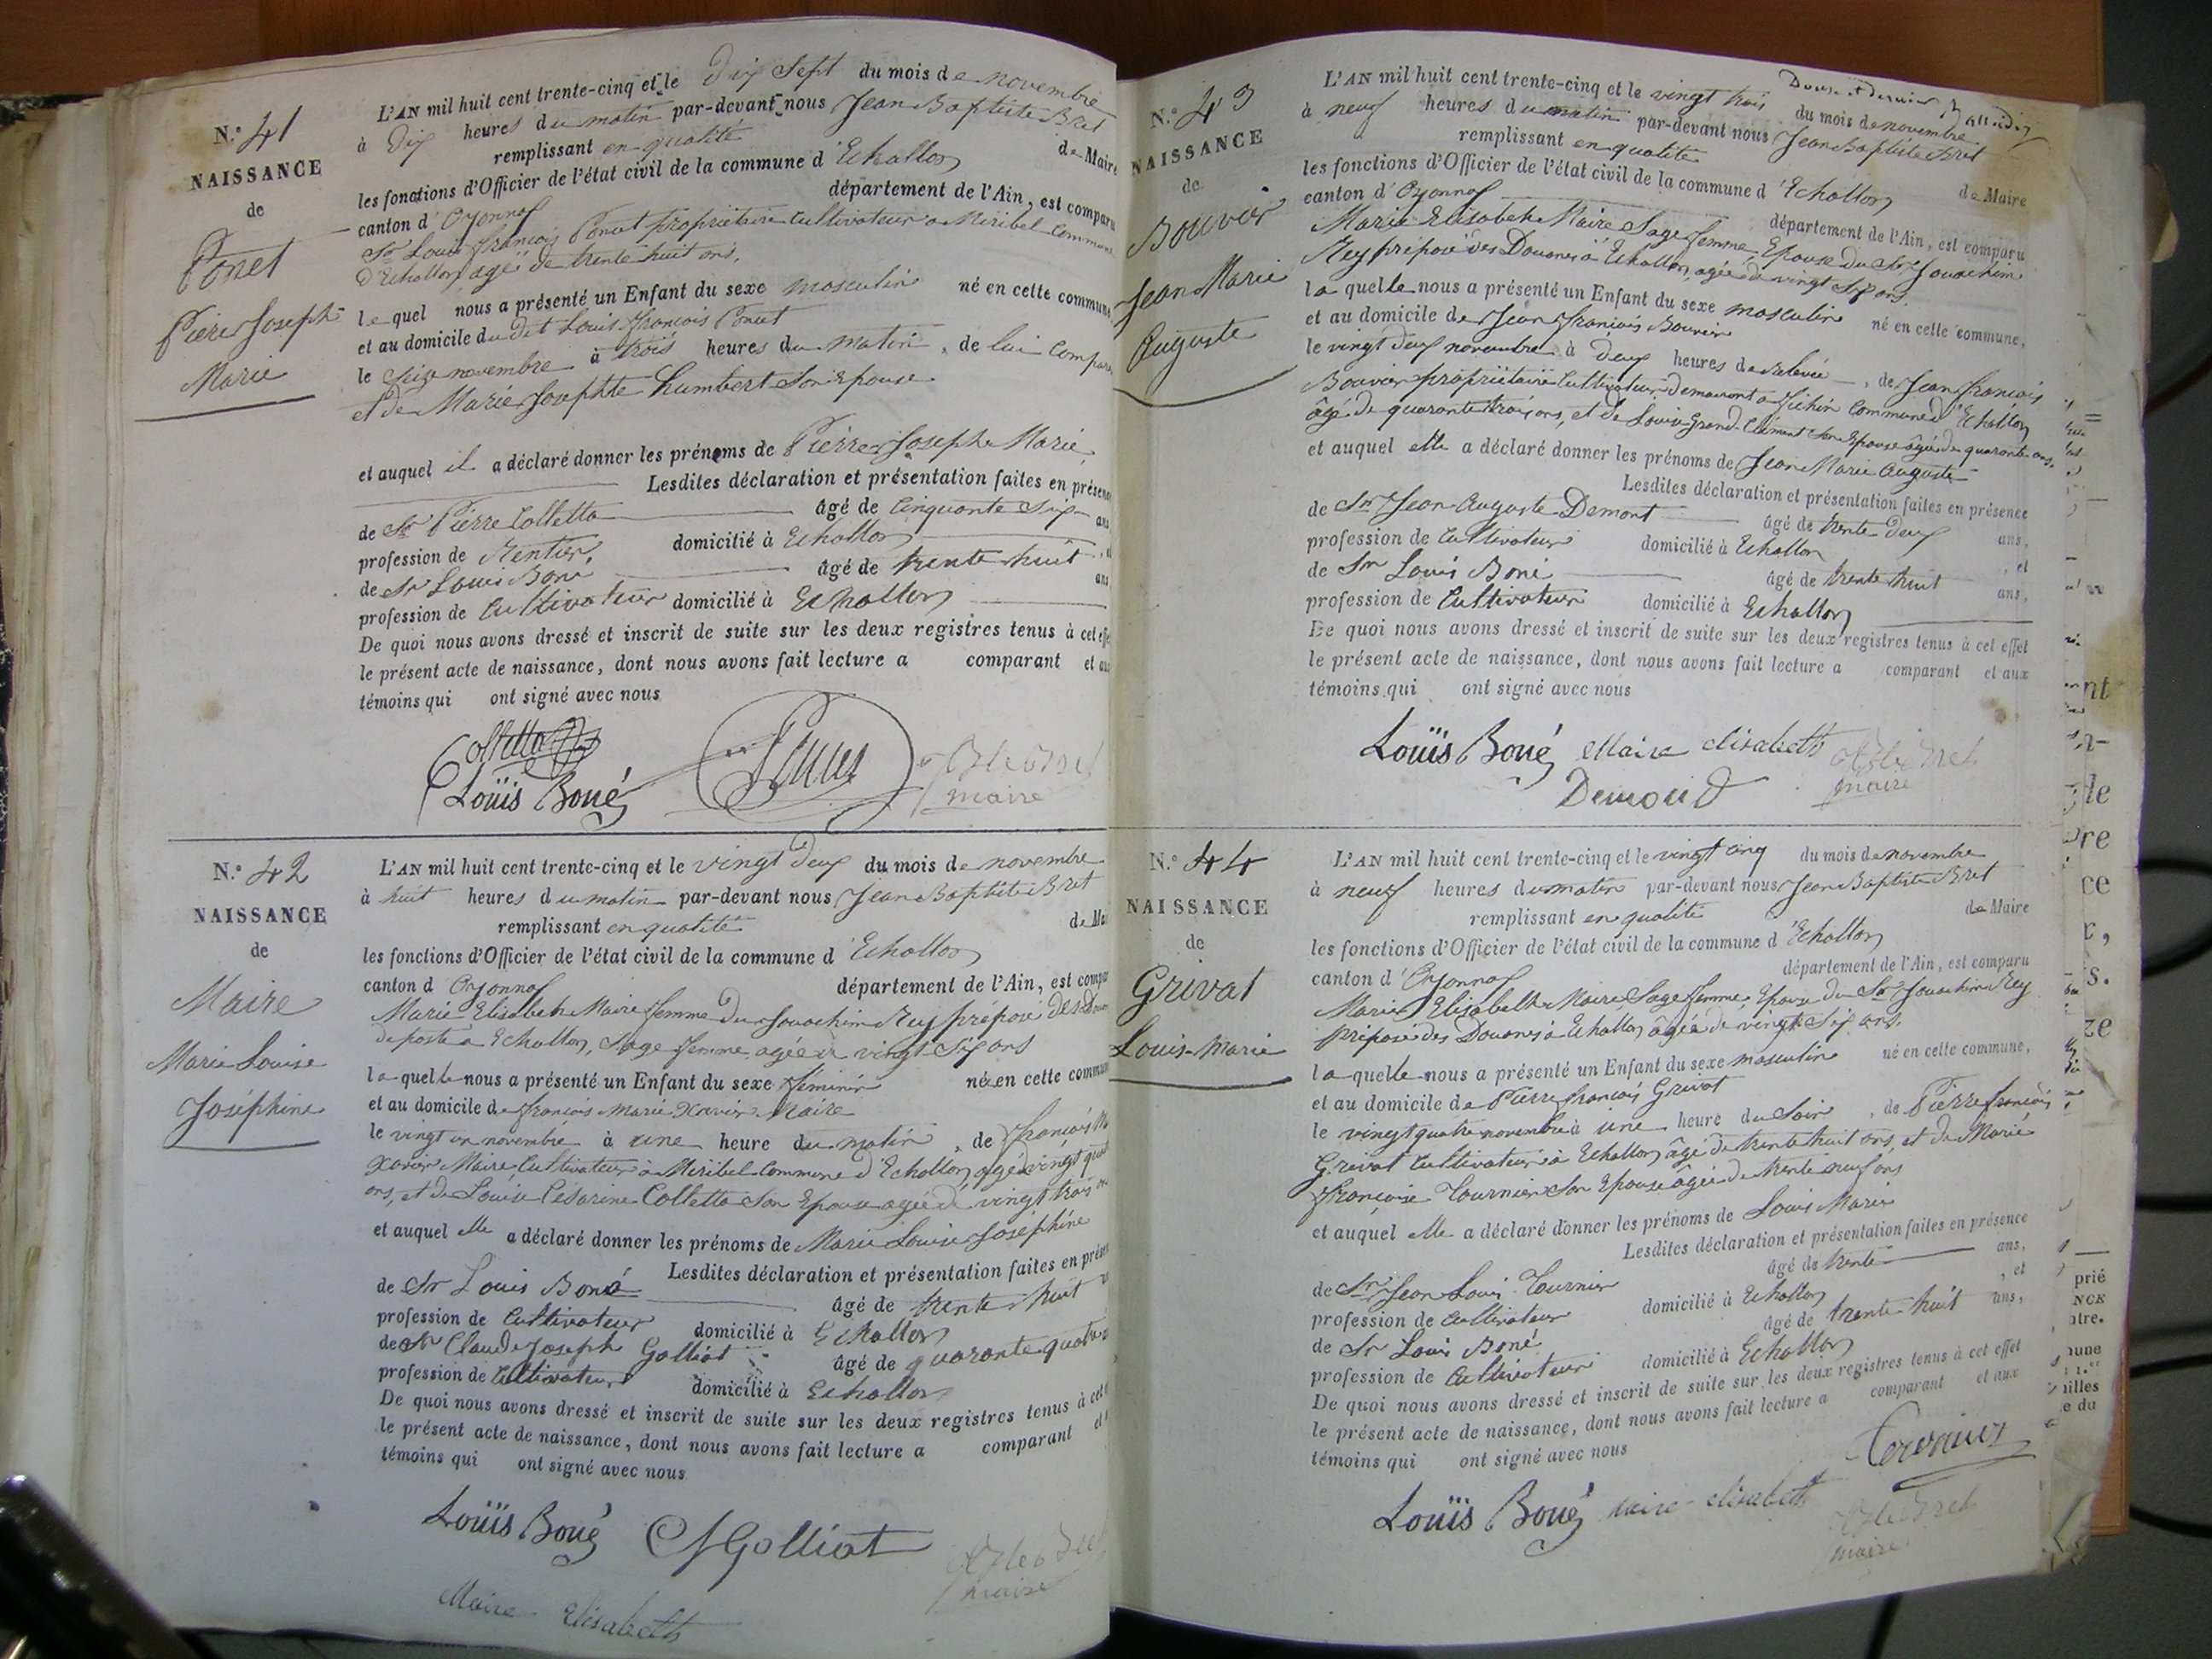 N.° 41
NAISSANCE
de
Ponet
Pierre Joseph
Marie
L'AN mil huit cent trente-cinq et le dix sept du mois de novembre
à dix heures du matin par-devant nous Jean Baptiste Bret
remplissant en qualité de Maire
les fonctions d'Officier de l'état civil de la commune d'Echallon
canton d'Oyonnax département de l'Ain, est comparu
Sr Louis François Poncet propriétaire cultivateur à Miribel commune
d'Echallon agé de trente huit ans,
lequel nous a présenté un Enfant du sexe masculin né en cette commune
et au domicile du dit Louis François Poncet
le seize novembre à trois heures du matin, de lui compar
et de Marie Josephte humbert son Epouse
et auquel il a déclaré donner les prénoms de Pierre Joseph Marie
Lesdites déclaration et présentation faites en présen
de Sr Pierre Colletta âgé de Cinquante six ans
profession de Rentier domicilié à Echallon
de Sr Louis Boné âgé de trente huit ans
profession de Cultivateur domicilié à Echallon
De quoi nous avons dressé et inscrit de suite sur les deux registres tenus à cet effe
le présent acte de naissance, dont nous avons fait lecture a comparant et au
témoins qui ont signé avec nous
Colletta
Louïs Boné
maire
N.° 42
NAISSANCE
de
Maire
Marie Louise
Joséphine
L'AN mil huit cent trente-cinq et le vingt deux du mois de novembre
à huit heures du matin par-devant nous Jean Baptiste Bret
remplissant en qualité de Mai
les fonctions d'Officier de l'état civil de la commune d'Echallon
canton d Oyonnax département de l'Ain, est compa
Marie Elisabeth Maire femme du Jouachim Rey préposé des
de poste à Echallon, Sage femme agée de vingt six ans
laquelle nous a présenté un Enfant du sexe féminin née en cette commun
et au domicile de françois marie Xavier Maire
le vingt un novembre à une heure du matin, de françois M
Xavier Maire Cultivateur à Miribel commune d'Echallon, agé de vingt quat
ans, et de Louise Césarine Colletta son Epouse agée de vingt trois
et auquel elle a déclaré donner les prénoms de Marie Louise Joséphine
Lesdites déclaration et présentation faites en présen
de Sr Louis Boné âgé de trente huit
profession de Cultivateur domicilié à Echallon
de Sr Claude Joseph Golliat âgé de quarante quatre
profession de Cultivateur domicilié à Echallon
De quoi nous avons dressé et inscrit de suite sur les deux registres tenus à cet
le présent acte de naissance, dont nous avons fait lecture a comparant et
témoins qui ont signé avec nous
Louïs Boné CJGolliat
maire
Maire Elisabeth
N.° 43
NAISSANCE
de
Bouvier
Jean Marie
Auguste
L'AN mil huit cent trente-cinq et le vingt trois du mois de novembre
à neuf heures du matin par-devant nous Jean Baptiste Bret
remplissant en qualité de Maire
les fonctions d'Officier de l'état civil de la commune d'Echallon
canton d'Oyonnax département de l'Ain, est comparu
Marie Elisabeth Maire Sage femme, Epouse du Sr Jouachim
Rey préposé des Douanes à Echallon, agée de vingt six ans.
laquelle nous a présenté un Enfant du sexe masculin né en cette commune,
et au domicile de Jean françois Bouvier
le vingt deux novembre à deux heures de relevée, de Jean françois
Bouvier propriétaire cultivateur demeurant à commune d'Echallon
âgé de quarante trois ans, et de Louise Grand-Clément son Epouse âgée de quarante ans.
et auquel elle a déclaré donner les prénoms de Jean Marie Auguste
Lesdites déclaration et présentation faites en présence
de Sr Jean Auguste Demont âgé de trente deux ans,
profession de Cultivateur domicilié à Echallon, et
de Sr Louis Boné âgé de trente huit ans,
profession de Cultivateur domicilié à Echallon
De quoi nous avons dressé et inscrit de suite sur les deux registres tenus à cet effet
le présent acte de naissance, dont nous avons fait lecture a comparant et aux
témoins qui ont signé avec nous
Louïs Boné Maire elisabeth
Demond maire
N.° 44
NAISSANCE
de
Grivat
Louis-Marie
L'AN mil huit cent trente-cinq et le vingt cinq du mois de novembre
à neuf heures du matin par-devant nous Jean Baptiste Bret
remplissant en qualité de Maire
les fonctions d'Officier de l'état civil de la commune d'Echallon
canton d'Oyonnax département de l'Ain, est comparu
Marie Elisabeth Maire, Sage femme, Epouse du Sr Jouachim Rey
préposé des Douanes à Echallon, âgée de vingt six ans.
laquelle nous a présenté un Enfant du sexe masculin né en cette commune,
et au domicile de Pierre françois Grivat
le vingt quatre novembre à une heure du Soir, de Pierre françois
Grivat Cultivateur à Echallon, âgé de trente huit ans, et de Marie
françoise Tournier son Epouse âgée de trente neuf ans
et auquel elle a déclaré donner les prénoms de Louis Marie
Lesdites déclaration et présentation faites en présence
de Sr Jean Louis Tournier âgé de trente ans,
profession de Cultivateur domicilié à Echallon, et
de Sr Louis Boné âgé de trente huit ans,
profession de Cultivateur domicilié à Echallon
De quoi nous avons dressé et inscrit de suite sur les deux registres tenus à cet effet
le présent acte de naissance, dont nous avons fait lecture a comparant et aux
témoins qui ont signé avec nous
Louïs Boné Maire elisabeth
maire